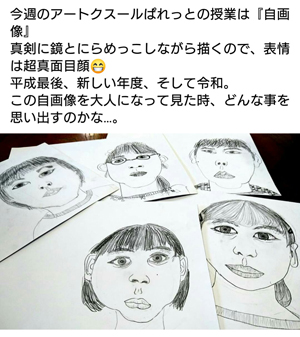 今週のアートクスールぱれっとの授業は『自画
像』
真剣に鏡とにらめっこしながら描くので、表情
は超真面目顔😁
平成最後、新しい年度、そして令和。
この自画像を大人になって見た時、どんな事を
思い出すのかな…。